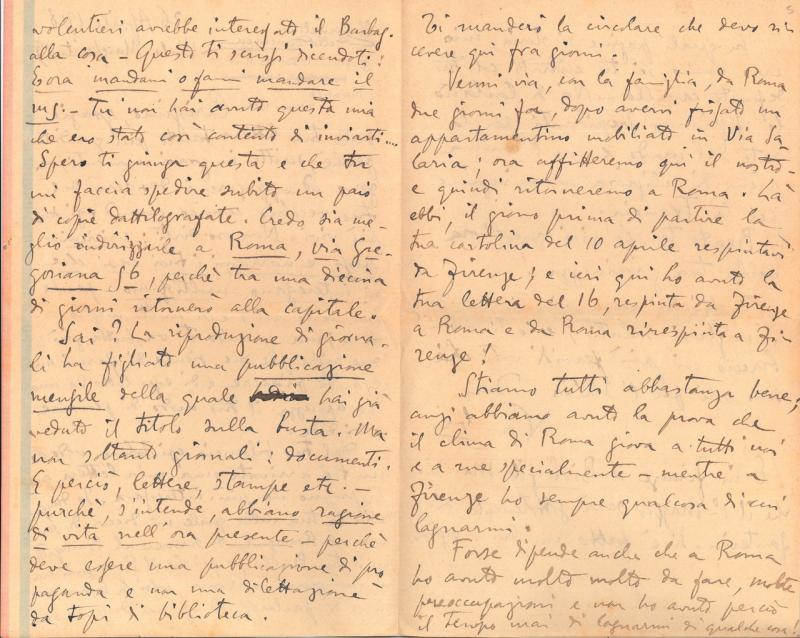 volentieri avrebbe interessato il Barbag.
alla cosa – Questo ti scrissi dicendoti:
Ora mandami o fammi mandare il
ms. – Tu non hai avuto questa mia
che ero stato così contento di inviarti...
Spero ti giunga questa e che tu
mi faccia spedire subito un paio
di copie dattilografate. Credo sia me-
glio indirizzarle a Roma, via Gre-
goriana 56, perchè tra una diecina
di giorni ritornerò alla capitale.
Sai? La riproduzione di giorna-
li ha figliato una pubblicazione
mensile della quale hai già
veduto il titolo sulla busta. Ma
non soltanto giornali: documenti.
E perciò, lettere, stampe etc. –
purchè, s'intende, abbiano ragione
di vita nell'ora presente – perchè
deve essere una pubblicazione di pro
paganda e non una dilettazione
da topi di biblioteca.
5
Ti manderò la circolare che devo ri-
cevere qui fra giorni.
Venni via, con la famiglia, da Roma
due giorni fa, dopo avervi fissato un
appartamentino mobiliato in Via Sa-
laria; ora affitteremo qui il nostro
e quindi ritorneremo a Roma. Là
ebbi, il giorno prima di partire la
tua cartolina del 10 aprile respintami
da Firenze; e ieri qui ho avuto la
tua lettera del 16, respinta da Firenze
a Roma e da Roma rirespinta a Fi-
renze!
Stiamo tutti abbastanza bene;
anzi abbiamo avuto la prova che
il clima di Roma giova a tutti noi
e a me specialmente – mentre a
Firenze ho sempre qualcosa di cui
lagnarmi.
Forse dipende anche che a Roma
ho avuto molto molto da fare, molte
preoccupazioni e non ho avuto perciò
il tempo mai di lagnarmi di qualche cosa!